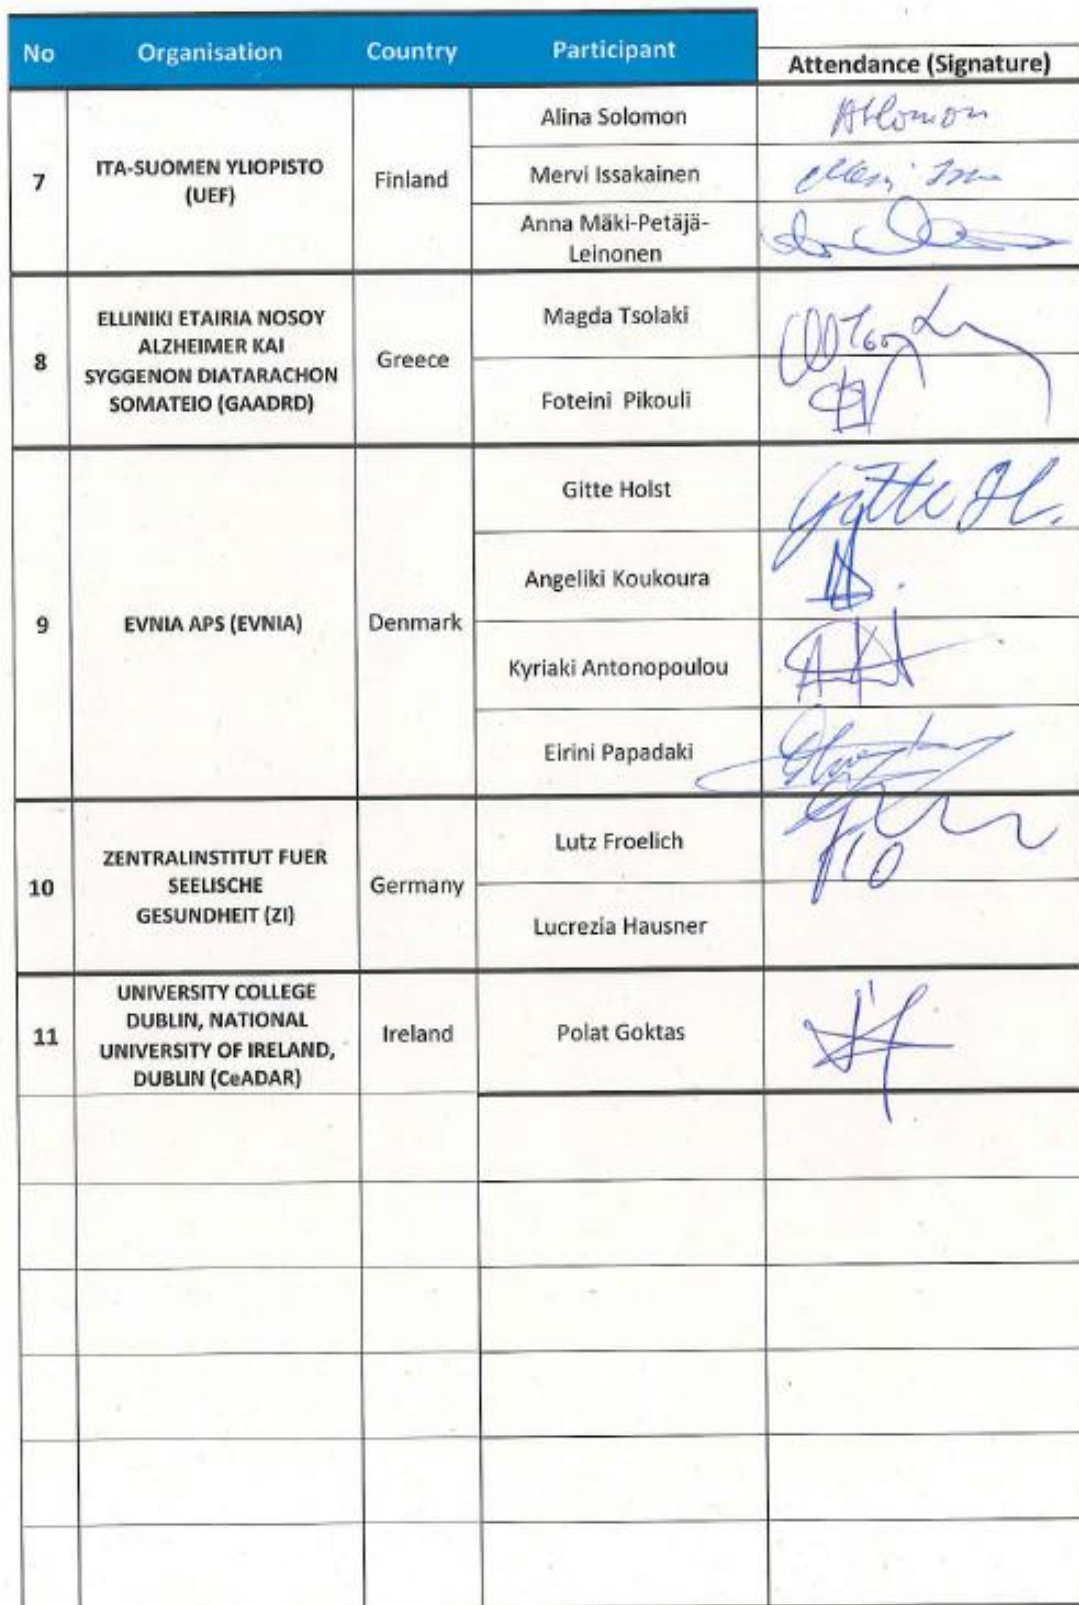 No Organisation Country Participant Attendance (Signature)
7 ITA-SUOMEN YLIOPISTO
(UEF)
Finland
Alina Solomon
ASolomon
Mervi Issakainen
Mervi
Anna Mäki-Petäjä-
Leinonen
8 ELLINIKI ETAIRIA NOSOY
ALZHEIMER KAI
SYGGENON DIATARACHON
SOMATEIO (GAADRD)
Greece
Magda Tsolaki
Foteini Pikouli
9 EVNIA APS (EVNIA)
Denmark
Gitte Holst
Gitte H.
Angeliki Koukoura
Kyriaki Antonopoulou
Eirini Papadaki
10 ZENTRALINSTITUT FUER
SEELISCHE
GESUNDHEIT (ZI)
Germany
Lutz Froelich
Lucrezia Hausner
11 UNIVERSITY COLLEGE
DUBLIN, NATIONAL
UNIVERSITY OF IRELAND,
DUBLIN (CeADAR)
Ireland
Polat Goktas